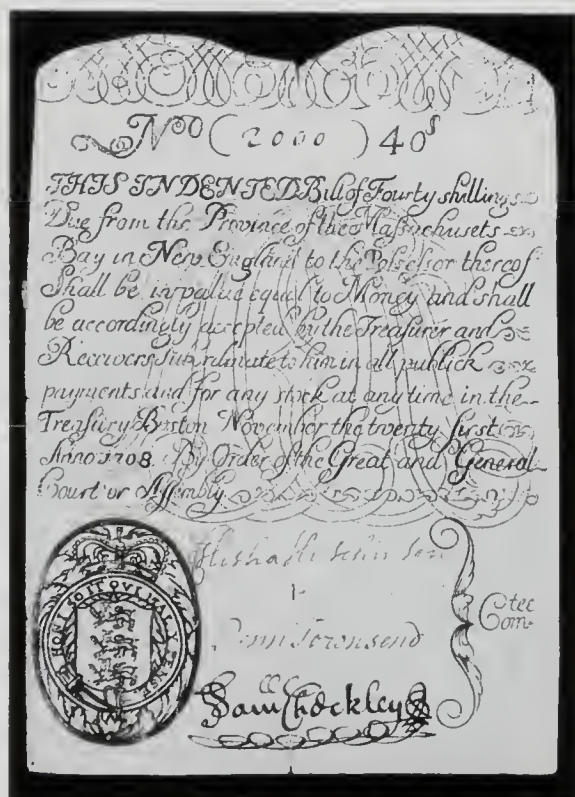 No (2000) 40s
THIS INDENTED Bill of Fourty shillings
Due from the Province of the Massachusets
Bay in New England to the Possessor thereof
Shall be in value equal to Money and shall
be accordingly accepted by the Treasurer and
Receivers Subordinate to him in all publick
payments and for any stock at any time in the
Treasury Boston November the twenty first
Anno 1708. By Order of the Great and General
Court or Assembly
HONI SOIT QVI MAL Y PENSE
Penn Townsend
Com-tee
Sam Checkley